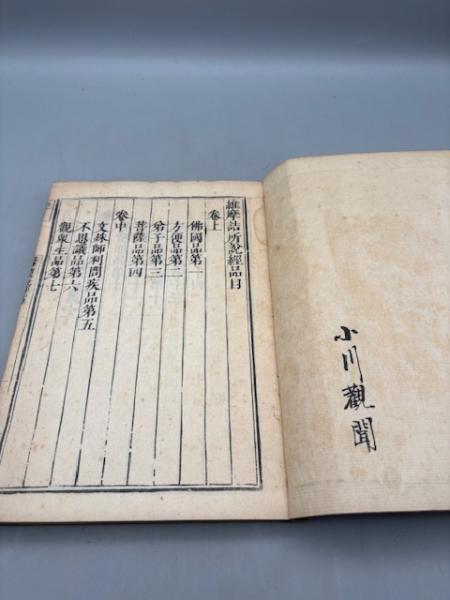 小川觀聞
維摩詰所說經品目
卷上
佛國品第一
方便品第二
弟子品第三
菩薩品第四
卷中
文殊師利問疾品第五
不思議品第六
觀衆生品第七